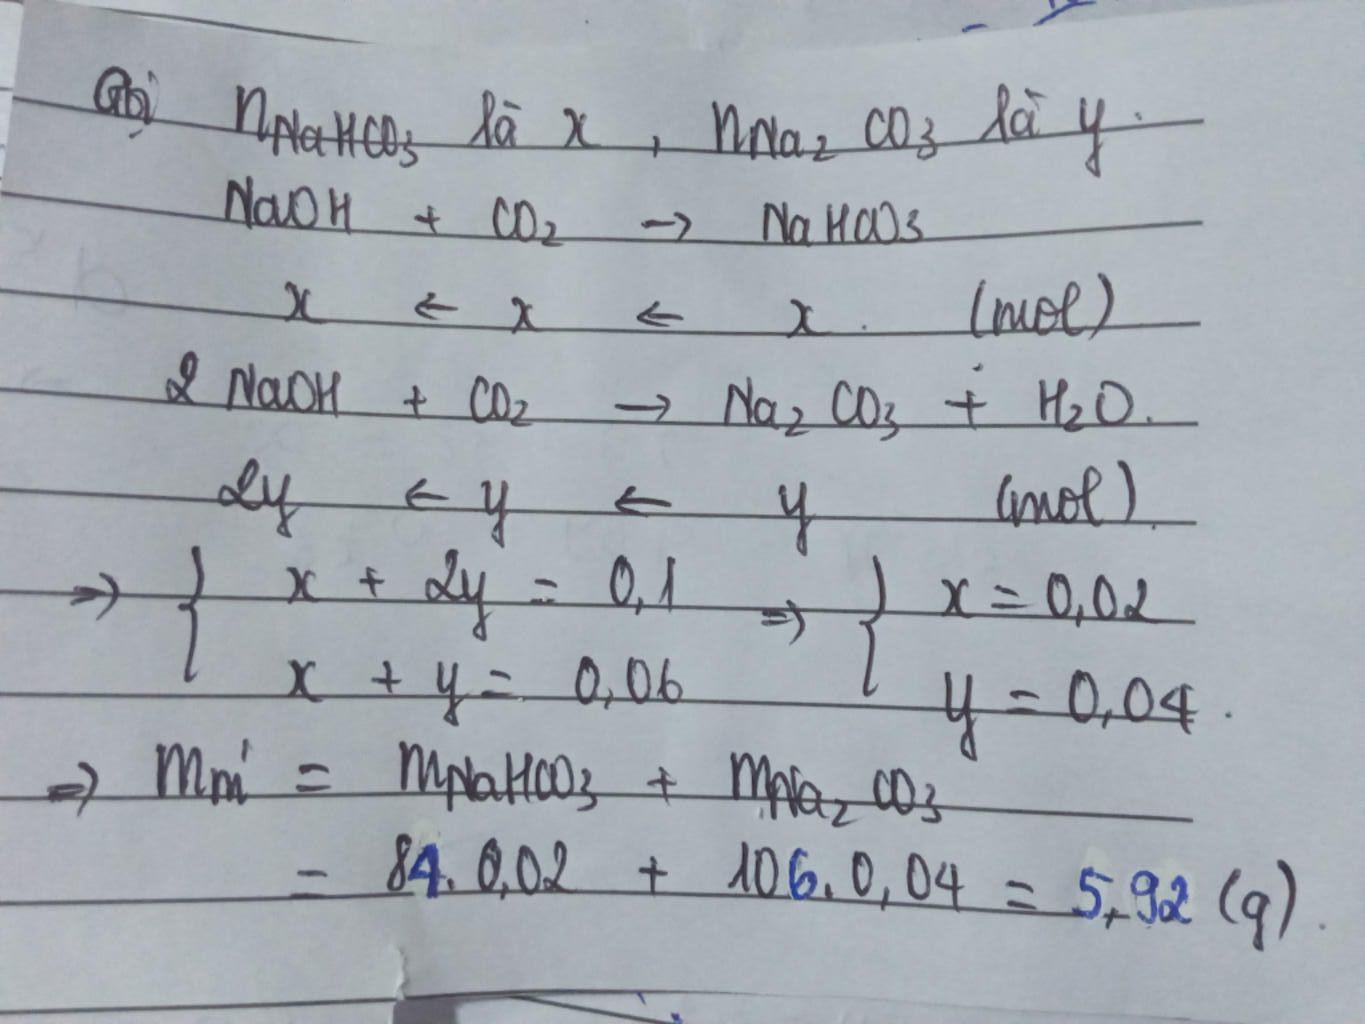 Gọi nNaHCO3 là x , nNa2CO3 là y .
NaOH + CO2 → NaHCO3
x ← x ← x . (mol)
2 NaOH + CO2 → Na2CO3 + H2O.
2y ← y ← y (mol).
⇒ { x + 2y = 0,1 ⇒ { x = 0,02
x + y = 0,06 y = 0,04 .
⇒ mm' = mNaHCO3 + mNa2CO3
= 84. 0,02 + 106. 0,04 = 5,92 (g) .